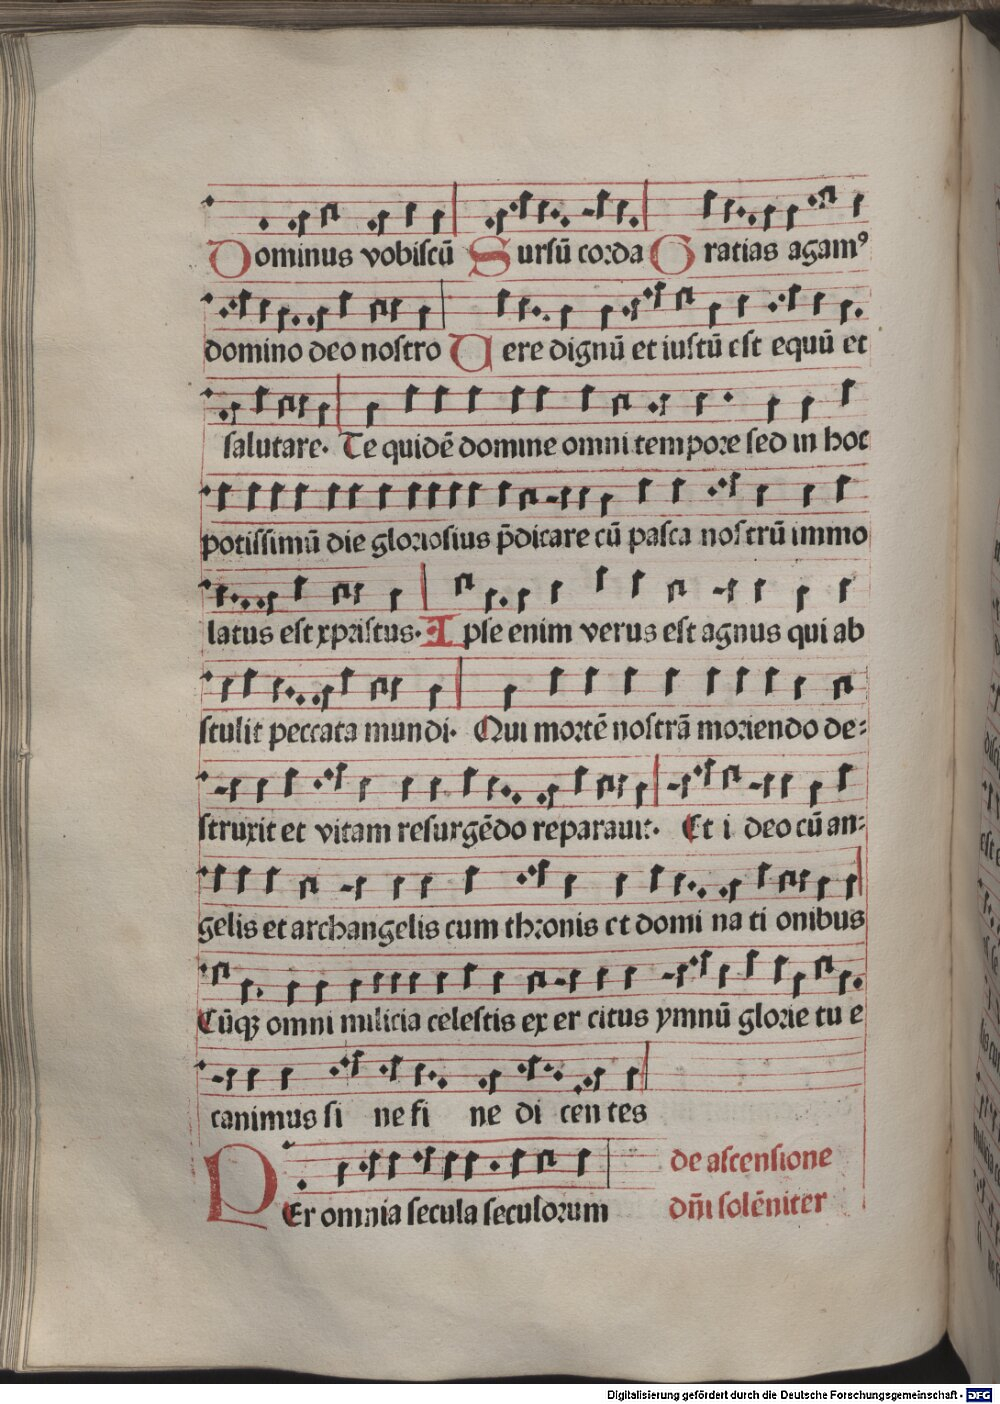 Dominus vobiscū Sursū corda Gratias agamꝰ
domino deo nostro Vere dignū et iustū est equū et
salutare. Te quidē domine omni tempore sed in hoc
potissimū die gloriosius p̄dicare cū pasca nostrū immo
latus est xp̄istus. Ipse enim verus est agnus qui ab
stulit peccata mundi. Qui mortē nostrā moriendo de⸗
struxit et vitam resurgēdo reparauit. Et i deo cū an⸗
gelis et archangelis cum thronis et domi na ti onibus
Cūqꝫ omni milicia celestis ex er citus ymnū glorie tu e
canimus si ne fi ne di cen tes
PEr omnia secula seculorum de ascensione
dn̄i solēniter
Digitalisierung gefördert durch die Deutsche Forschungsgemeinschaft - DFG